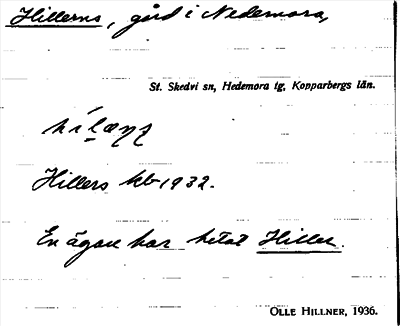 Hillerns, gård i Nedemora,
St. Skedvi sn, Hedemora tg, Kopparbergs län.
Hillers kb 1932.
En ägare har hetat Hiller.
OLLE HILLNER, 1936.